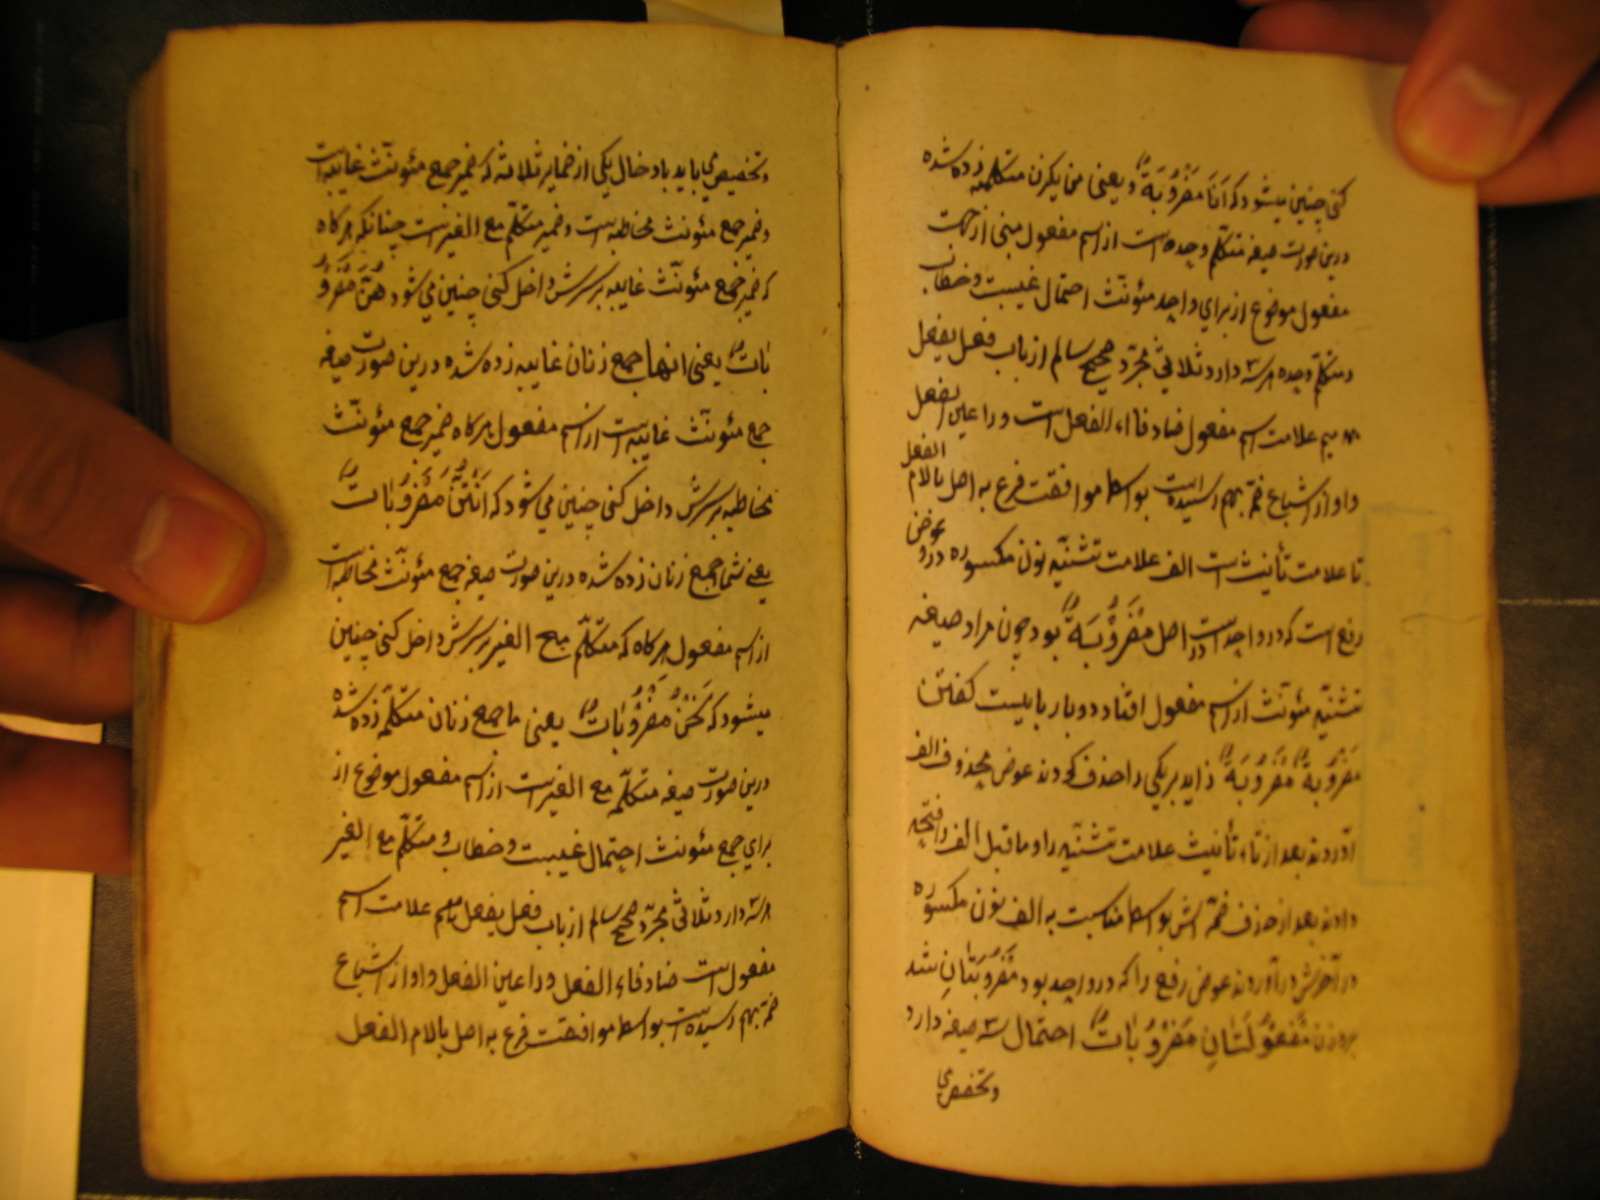 کنی چنین میشود که اَنَا مَضْرُوبَةٌ و یعنی من یکزن متکلمه زده شده
درین صورت صیغه متکلّم وحده است از اسم مفعول مبنی از جهت
مفعول موضوع از برای واحد مئونّث احتمال غیبت و خطاب
و متکلّم وحده هر سه دارد ثلاثی مجرّد صحیح سالم از باب فعل یفعل
میم علامت اسم مفعول ضاد فاء الفعل است و را عین الفعل
واو از اشباع ضمّه بهم رسیده است بواسطه موافقت فرع به اصل با لام الفعل
تا علامت تأنیث است الف علامت تثنیّه نون مکسوره در و عوض
رفع است که در واحد است در اصل مَضْرُوبَةٌ بود چون مراد صیغه
تثنیّه مئونّث از اسم مفعول افتاد دو بار بایست گفتن
مَضْرُوبَةٌ مَضْرُوبَةٌ زاید بر یکی را حذف کردند عوض محذوف الف
آوردند بعد از تاء تأنیث علامت تثنیّه را و ماقبل الف را فتحه
دادند بعد از حذف ضمّه اش بواسطه مناسبت به الف نون مکسوره
در آخرش در آوردند عوض رفع را که در واحد بود مَضْرُوبَتَانِ شد
بر وزن مَفْعُولَتَانِ مَضْرُوبَاتٌ احتمال سه صیغه دارد
و تخصیص
و تخصیص می باید بادخال یکی از ضمایر ثلاثه که ضمیر جمع مئونّث غایبه است
و ضمیر جمع مئونّث مخاطبه است و ضمیر متکلّم مع الغیر است چنانکه هر کاه
که ضمیر جمع مئونّث غایبه بر سرش داخل کنی چنین می شود هُنَّ مَضْرُو
بَاتٌ یعنی انها جمع زنان غایبه زده شده درین صورت صیغه
جمع مئونّث غایبه است از اسم مفعول هر کاه ضمیر جمع مئونّث
مخاطبه بر سرش داخل کنی چنین می شود که اَنْتُنَّ مَضْرُوبَاتٌ
یعنی شما جمع زنان زده شده درین صورت صیغه جمع مئونّث مخاطبه است
از اسم مفعول هر کاه که متکلّم مع الغیر بر سرش داخل کنی چنین
میشود که نَحْنُ مَضْرُوبَاتٌ یعنی ما جمع زنان متکلّمه زده شده
درین صورت صیغه متکلّمه مع الغیر است از اسم مفعول موضوع از
برای جمع مئونّث احتمال غیبت و خطاب و متکلّم مع الغیر
هر سه دارد ثلاثی مجرّد صحیح سالم از باب فعل یفعل میم علامت اسم
مفعول است ضاد فاء الفعل و را عین الفعل واو از اشباع
ضمّه بهم رسیده است بواسطه موافقت فرع به اصل با لام الفعل